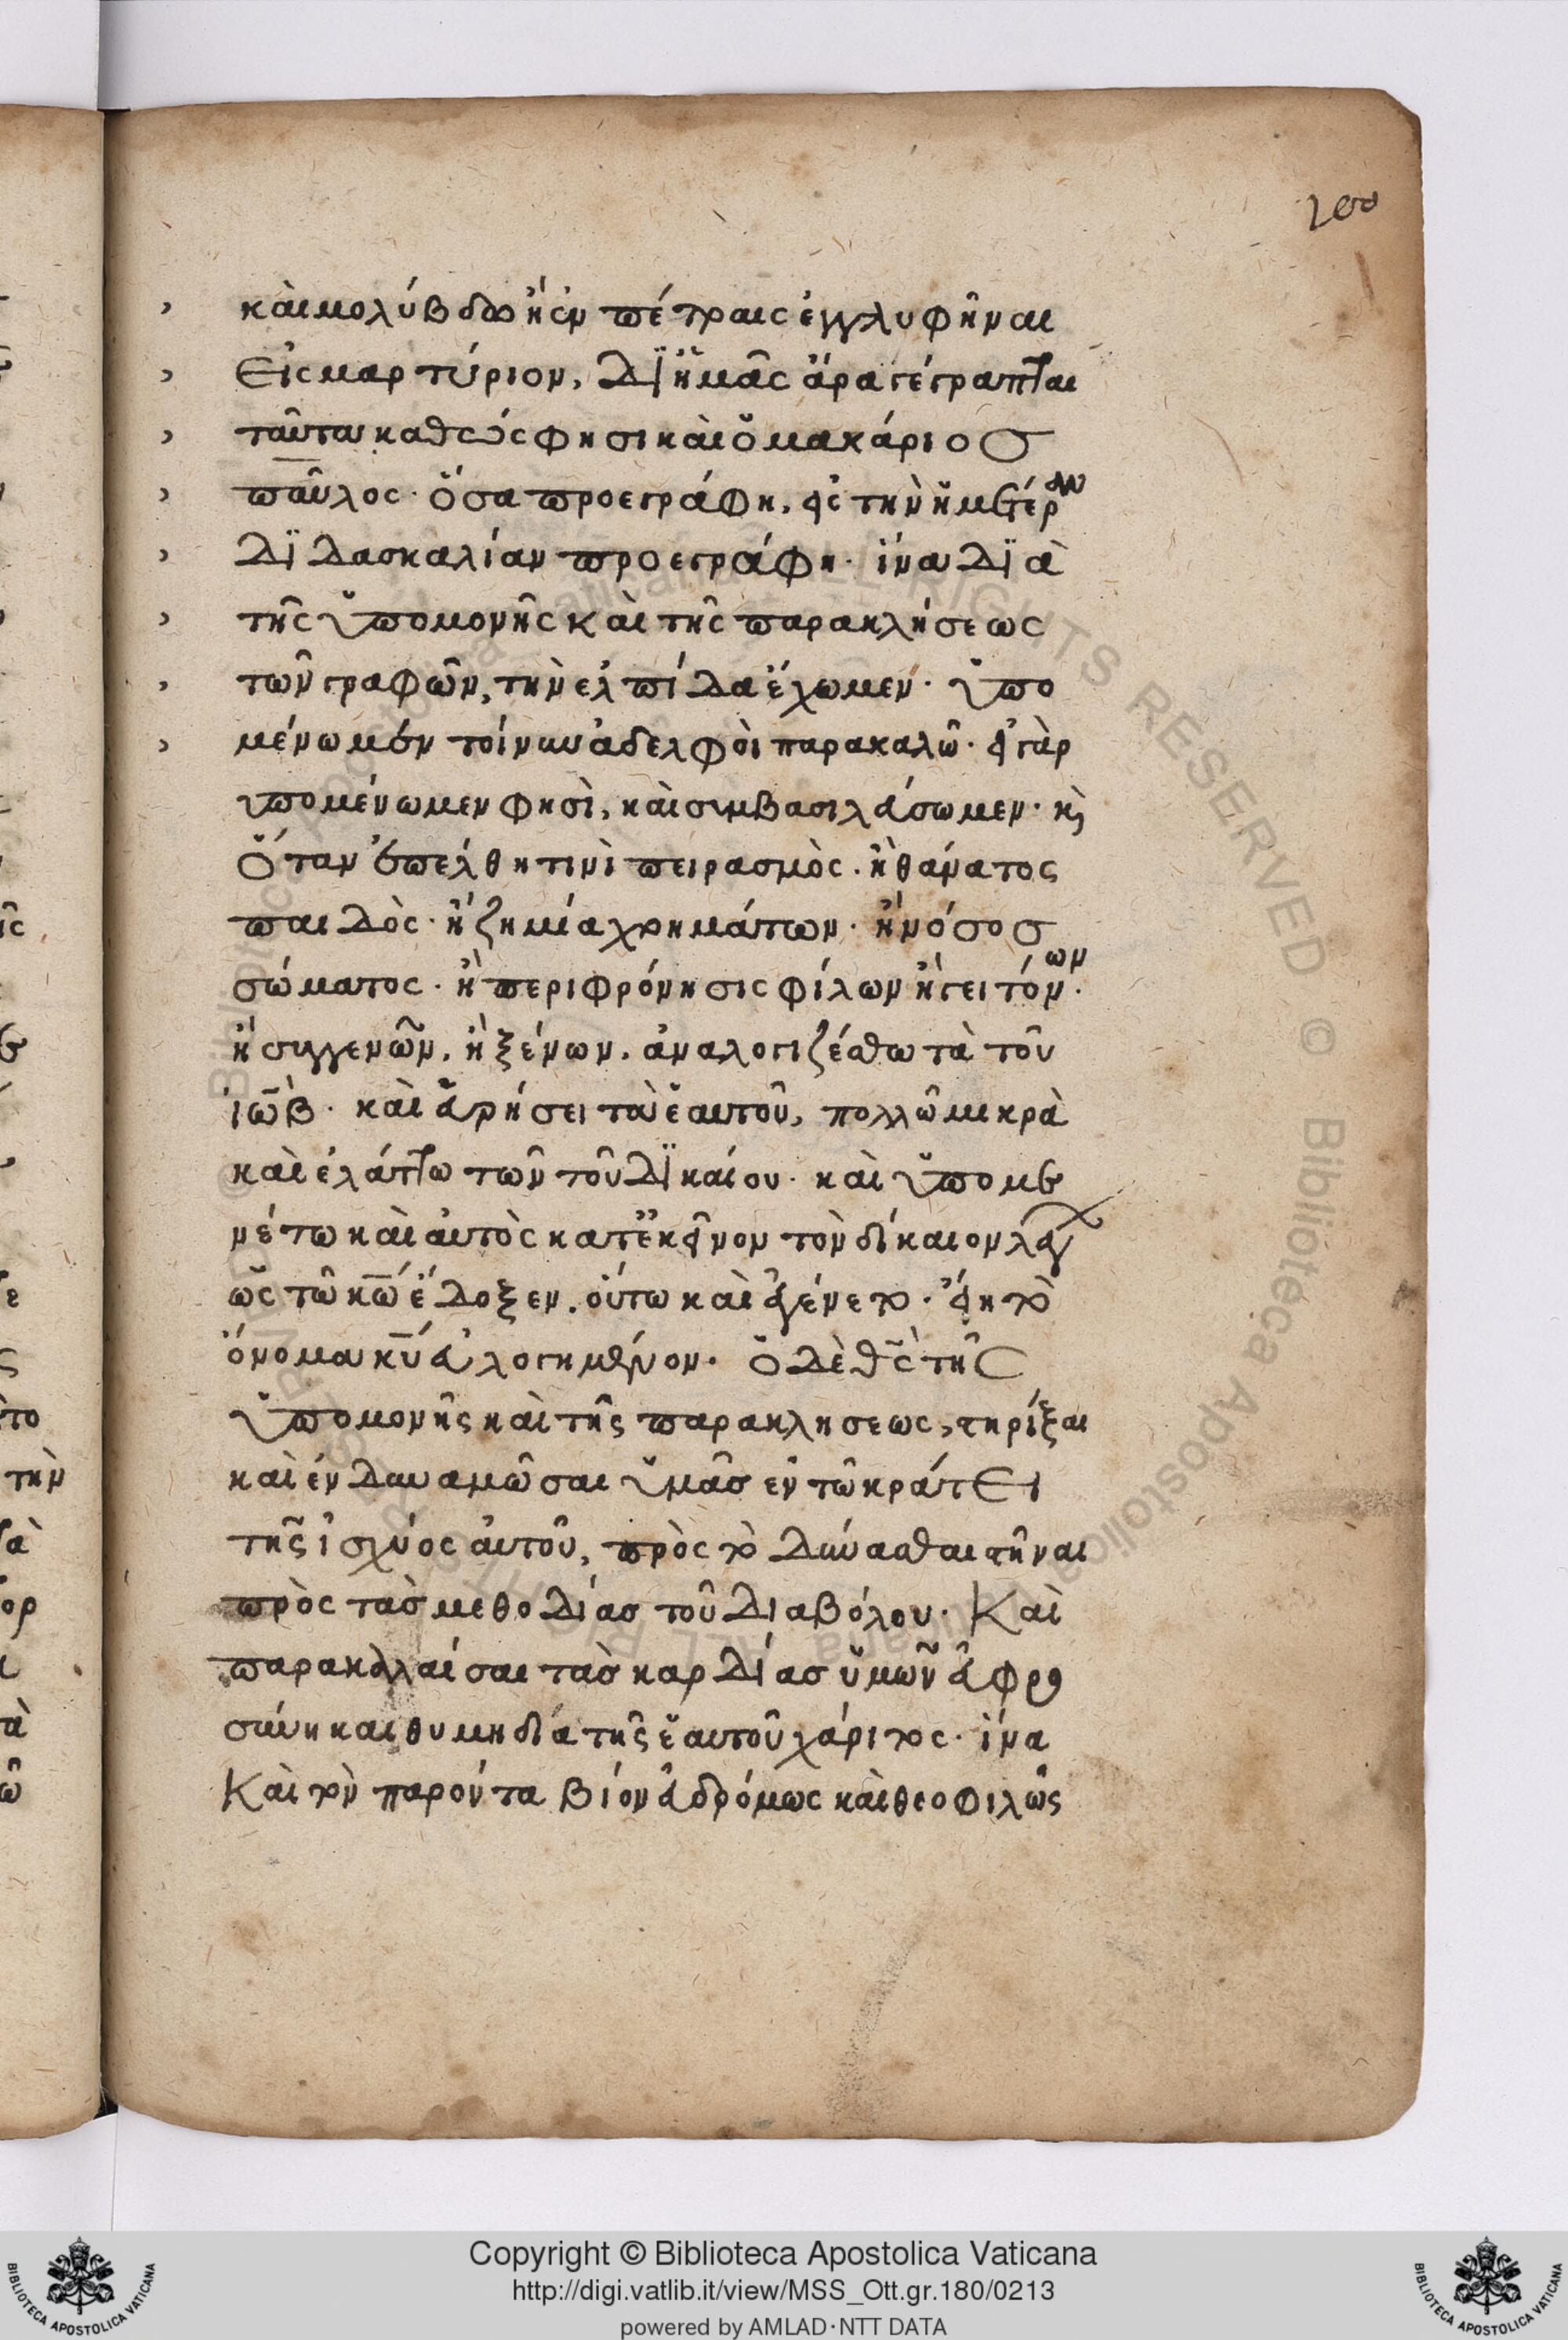 200
καὶ μολύβδω ἢ ἐν πέτραις ἐγγλυφῆναι
εἰς μαρτύριον, δϊ ἡμᾶς ἄρα γέγραπται
ταῦτα καθώς φησι καὶ ὁ μακάριος
παῦλος· ὅσα προεγράφη, εἰς τὴν ἡμετέραν
διδασκαλίαν προεγράφη· ἵνα διὰ
τῆς ὑπομονῆς καὶ τῆς παρακλήσεως
τῶν γραφῶν, τὴν ελπίδα ἔχωμεν· ὑπο
μένωμεν τοίνυν ἀδελφοὶ παρακαλῶ· εἰ γὰρ
ὑπομένωμεν φησὶ, καὶ συμβασιλεύσωμεν· κ̀
ὅταν ἐπέλθη τινὶ πειρασμὸς· ἢ θάνατος
παιδὸς· ἢ ζημία χρημάτων· ἢ νόσος
σώματος· ἢ περιφρόνησις φίλων ἢ γειτόνων·
ἢ συγγενῶν, ἢ ξένων, ἀναλογιζέσθω τὰ τοῦ
ἰὼβ· καὶ εὑρήσει τὰ ἑαυτοῦ, πολλῶ μικρὰ
καὶ ἐλάττω τῶν τοῦ δϊκαίου· καὶ ὑπομε
νέτω καὶ αὐτὸς κατ' ἐκεῖνον τὸν δίκαιον λέγ
ὡς τῶ κ̅ω̅ ἔδοξεν, οὕτω καὶ ἐγένετο· εἴη τὸ
ὄνομα κ̅υ̅ εὐλογημένον· ὁ δὲ θ̅ς̅ τῆς
ὑπομονῆς καὶ τῆς παρακλησεως, στηρίξαι
καὶ ἐνδυναμῶσαι ὑμᾶς ἐν τῶ κράτει
τῆς ἰσχύος ἀυτοῦ, πρὸς τὸ δύνασθαι στῆναι
πρὸς τὰς μεθοδίας τοῦ διαβόλου· Καὶ
παρακαλέσαι τὰς καρδίας ὑμῶν εὐφρο
σύνη και θυμηδία τῆς ἑαυτοῦ χάριτος· ἵνα
Καὶ τὸν παρόντα βίον εὐδρόμως καὶ θεοφιλῶς
Copyright © Biblioteca Apostolica Vaticana
http://digi.vatlib.it/view/MSS_Ott.gr.180/0213
powered by AMLAD·NTT DATA